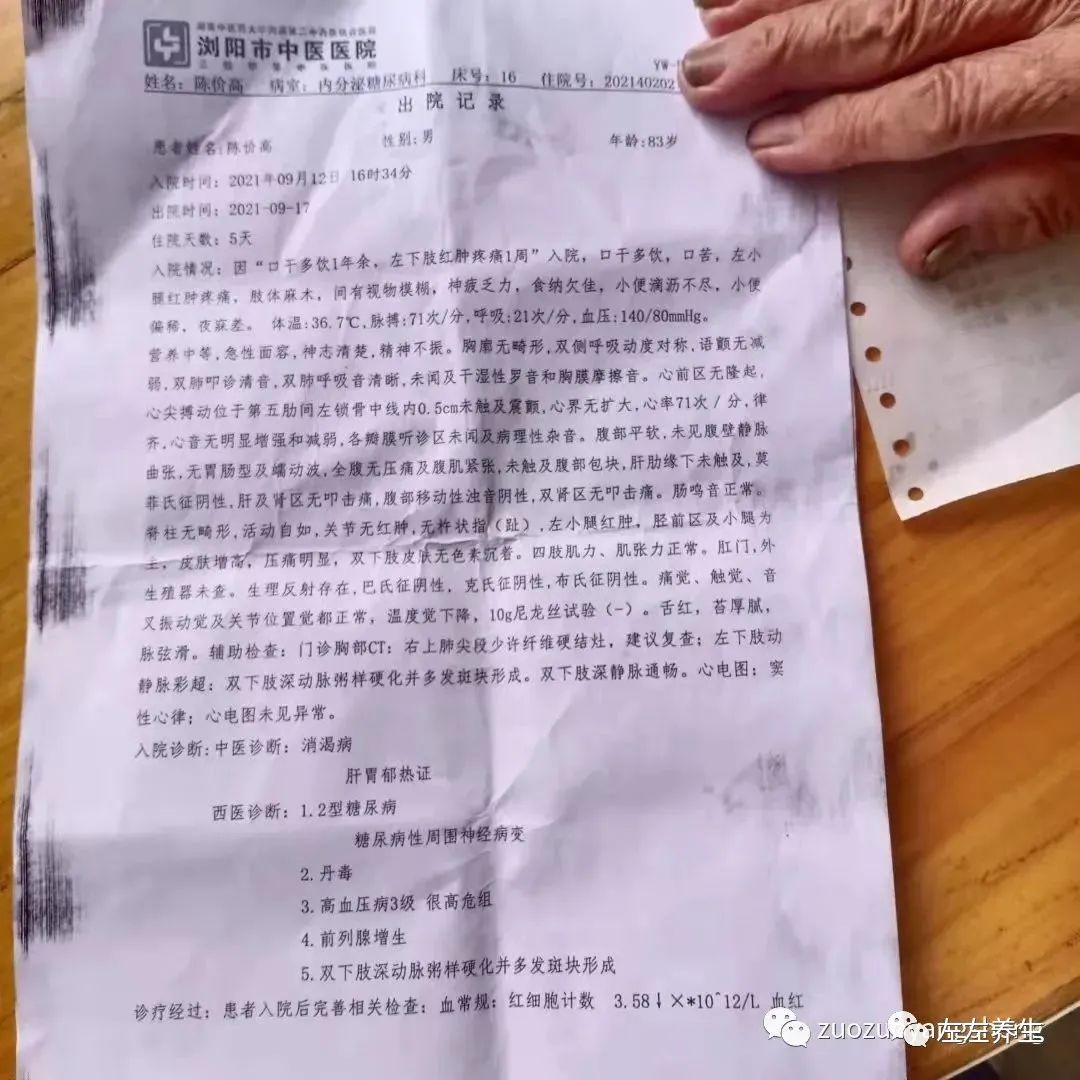 浏阳市中医医院
姓名: 陈价高 病室: 内分泌糖尿病科 床号: 16 住院号: 202140202
YW-
出院记录
患者姓名:陈价高 性别:男 年龄:83岁
入院时间: 2021年09月12日 16时34分
出院时间: 2021-09-17
住院天数: 5天
入院情况: 因“口干多饮1年余, 左下肢红肿疼痛1周”入院, 口干多饮, 口苦, 左小
腿红肿疼痛, 肢体麻木, 间有视物模糊, 神疲乏力, 食纳欠佳, 小便滴沥不尽, 小便
偏稀, 夜寐差。 体温:36.7℃,脉搏:71次/分,呼吸:21次/分,血压:140/80mmHg。
营养中等,急性面容,神志清楚,精神不振。胸廓无畸形,双侧呼吸动度对称,语颤无减
弱,双肺叩诊清音,双肺呼吸音清晰,未闻及干湿性罗音和胸膜摩擦音。心前区无隆起,
心尖搏动位于第五肋间左锁骨中线内0.5cm未触及震颤,心界无扩大,心率71次/分,律
齐,心音无明显增强和减弱,各瓣膜听诊区未闻及病理性杂音。腹部平软,未见腹壁静脉
曲张,无胃肠型及蠕动波,全腹无压痛及腹肌紧张,未触及腹部包块,肝肋缘下未触及,莫
菲氏征阴性,肝及肾区无叩击痛,腹部移动性浊音阴性,双肾区无叩击痛。肠鸣音正常。
脊柱无畸形,活动自如,关节无红肿,无杵状指(趾),左小腿红肿, 胫前区及小腿为
主, 皮肤增高, 压痛明显, 双下肢皮肤无色素沉着。四肢肌力、肌张力正常。肛门,外
生殖器未查。生理反射存在,巴氏征阴性, 克氏征阴性,布氏征阴性。痛觉、触觉、音
叉振动觉及关节位置觉都正常, 温度觉下降, 10g尼龙丝试验(-)。舌红, 苔厚腻,
脉弦滑。辅助检查: 门诊胸部CT: 右上肺尖段少许纤维硬结灶, 建议复查; 左下肢动
静脉彩超: 双下肢深动脉粥样硬化并多发斑块形成。双下肢深静脉通畅。心电图: 窦
性心律; 心电图未见异常。
入院诊断:中医诊断: 消渴病
肝胃郁热证
西医诊断: 1.2型糖尿病
糖尿病性周围神经病变
2.丹毒
3.高血压病3级 很高危组
4.前列腺增生
5.双下肢深动脉粥样硬化并多发斑块形成
诊疗经过: 患者入院后完善相关检查: 血常规: 红细胞计数 3.58↓×*10^12/L 血红
左左养生